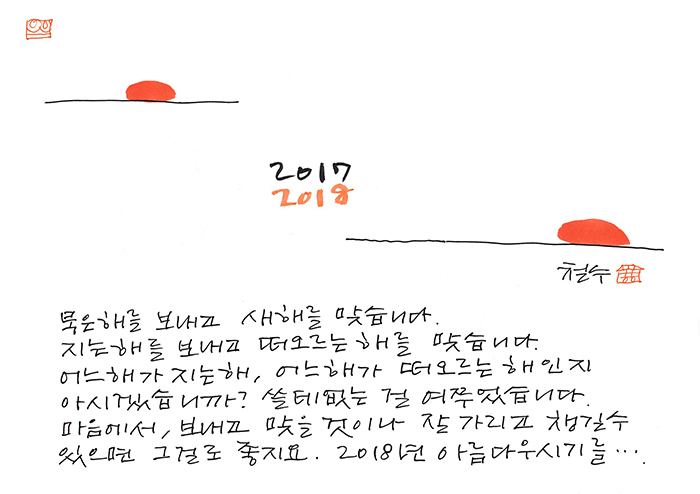 2017
2018
철수
묵은해를 보내고 새해를 맞습니다.
지는해를 보내고 떠오르는 해를 맞습니다.
어느해가 지는해, 어느해가 떠오르는 해인지
아시겠습니까? 쓸데없는 걸 여쭈었습니다.
마음에서, 보내고 맞을 것이나 잘 가리고 챙길수
있으면 그걸로 좋지요. 2018년 아름다우시기를….